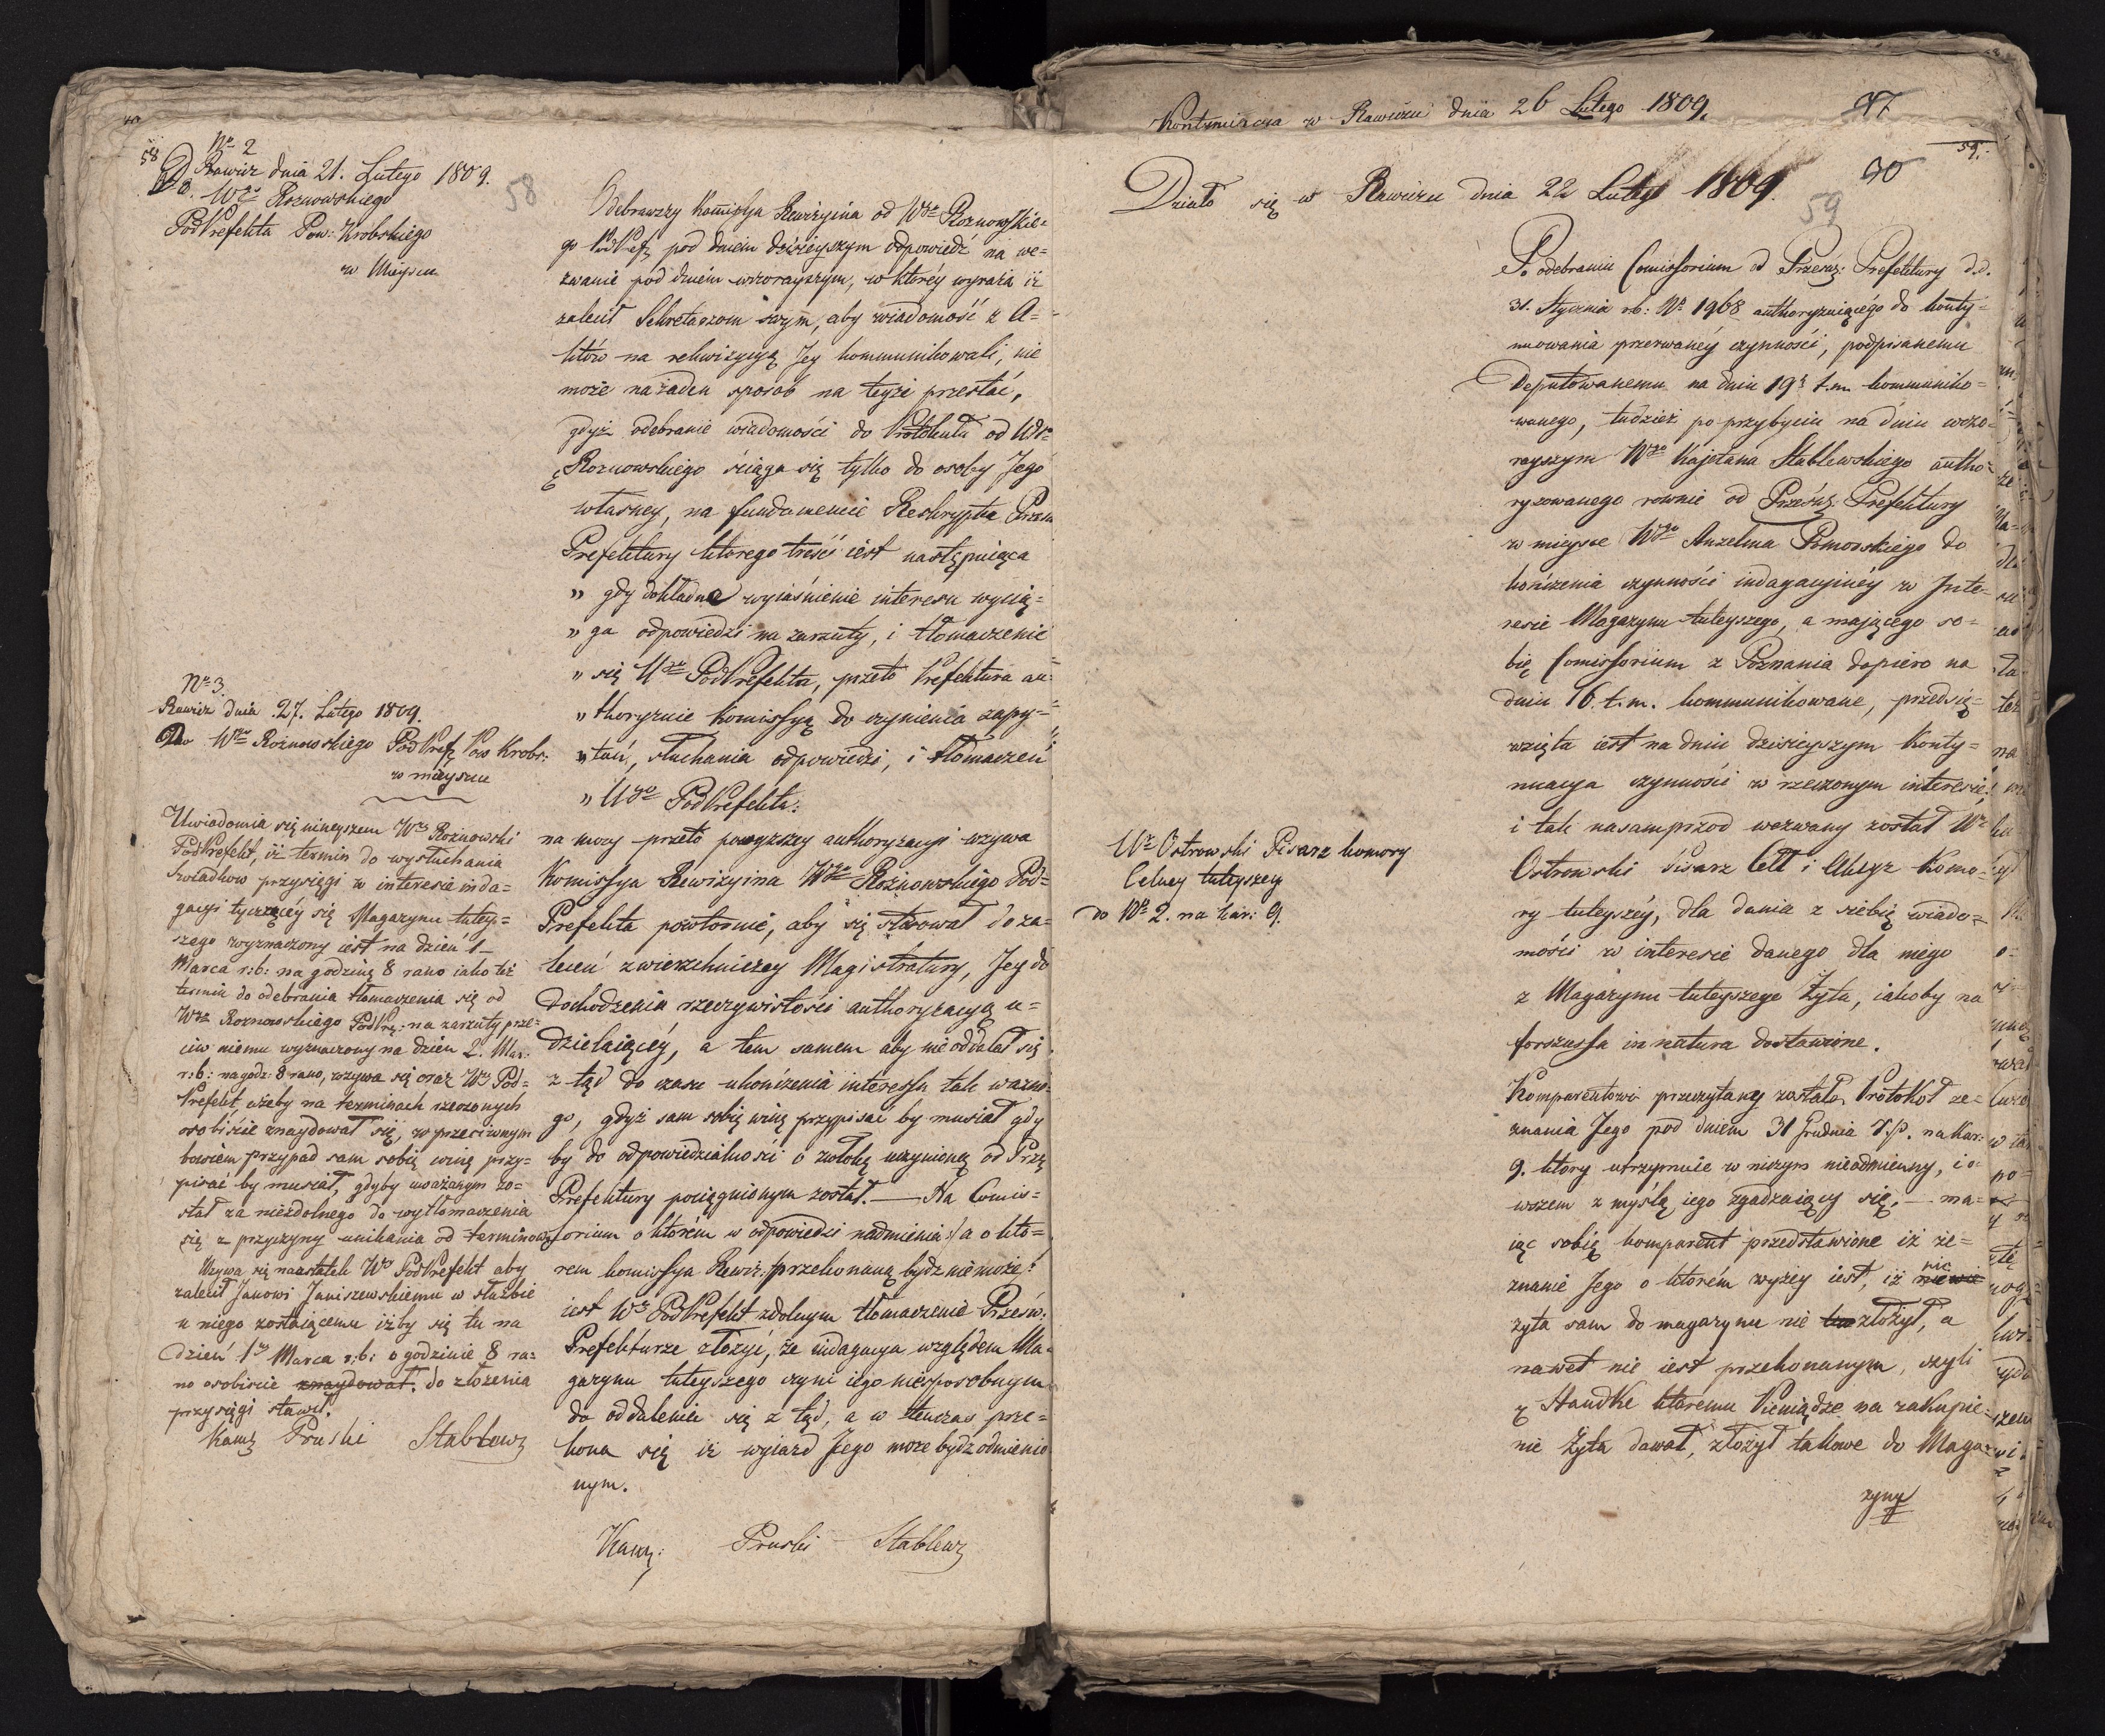 58
Nro 2
Rawicz dnia 21. Lutego 1809.
Do Wgo Roznowskiego
PodPrefekta Pow: Krobskiego
w Mieyscu
58
Odebrawszy Kommissya Rewizyina od Wgo Roznowskie-
go PodPref: pod dniem dzisieyszym odpowiedź na we-
zwanie pod dniem wczorayszym, w któréy wyraża iż
zalecił Sekretarzom swym, aby wiadomość z A=
któw na rekwizycyą Jey kommunikowali, nie
może na żaden sposób na teyże przestać,
gdyż odebranie wiadomości do Protokułu od Wgo
Roznowskiego ściąga się tylko do osoby Jego
własney, na fundamencie Reskryptu Prześw
Prefektury którego treść iest następuiąca
" gdy dokładne wyiaśnienie interesu wycią=
" ga odpowiedzi na zarzuty, i tłomaczenie
" się Wgo PodPrefekta, przeto Prefektura au=
" thoryzuie Komissyą do czynienia zapy=
" tań, słuchania odpowiedzi, i tłomaczeń
" Wgo PodPrefekta.
na mocy przeto powyższey authoryzacyi wzywa
Komissya Rewizyina Wgo Rożnowskiego Pod=
Prefekta powtornie, aby się stosował do za=
leceń zwierzchniczey Magistratury, Jey do
dochodzenia rzeczywistości authoryzacyą u=
dzielaiącéy, a tem samem aby nie oddalał się
z tąd do czasu ukończenia interessu tak ważne=
go, gdyż sam sobię winę przypisać by musiał gdy
by do odpowiedzialności o zwłokę uczynioną od Prze
Prefektury pociągnionym został. — Na Comis=
sorium o którem w odpowiedzi nadmienia :/ a o któ=
rem komissya Rewiz: przekonaną bydz nie może /:
iest Wny PodPrefekt zdolnym tłomaczenie Prześw:
Prefekturze złożyć, że indagacya względem Ma=
gazynu tuteyszego czyni iego niesposobnym
do oddalenia się z tąd, a w tenczas prze=
kona się iż wyiazd Jego może bydz odmienio
nym.
Pruski Stablew
Nro 3.
Rawicz dnia 27. Lutego 1809.
Do Wgo Rożnowskiego PodPref Pow Krobs:
w mieyscu
Uwiadomia się ninieyszem Wny Rożnowski
PodPrefekt, iż termin do wysłuchania
świadkow przysięgi w interesie inda=
gacyi tyczącéy się Magazynu tutey=
szego wyznaczony iest na dzień 1
Marca r:b: na godzinę 8 rano iako też
termin do odebrania tłomaczenia się od
Wgo Roznowskiego PodPre: na zarzuty prze=
ciw niemu wyznaczony na dzien 2. Mar:
r:b: na godz: 8 rano, wzywa się oraz Wny Pod=
Prefekt ażeby na terminach rzeczonych
osobiście znaydował się, w przeciwnym
bowiem przypad sam sobię winę przy=
pisać by musiał, gdyby uważanym zo=
stał za niezdolnego do wytłomaczenia
się z przyczyny unikania od terminow
Wzywa się naostatek Wny PodPrefekt aby
zalecił Janowi Janiszewskiemu w służbie
u niego zostaiącemu iżby się tu na
dzień 1go Marca r:b: o godzinie 8 ra=
no osobiście znaydował do złożenia
przysięgi stawił.
Pruski Stablew
Kontynuacya w Rawiczu dnia 26 Lutego 1809.
59.
90
Działo się w Rawiczu dnia 22 Lutego 1809.
59
Po odebraniu Comissorium od Prześw: Prefektury d.d.
31. Stycznia r.b: Nr 1968 authoryzuiącégo do konty=
nuowania przerwanéy czynności, podpisanemu
Deputowanemu na dniu 19 t.m. kommuniko=
wanego, tudzież po przybyciu na dniu wczo=
rayszym Wgo Kajetana Stablewskiego autho=
ryzowanego rownie od Prześw: Prefektury
w mieysce Wgo Anzelma Pomorskiego do
kończenia czynności indagacyinéy w Inte=
resie Magazynu tuteyszego, a mającego so=
bię Comissorium z Poznania dopiero na
dniu 16. t.m. kommunikowane, przedsię=
wzięta iest na dniu dzisieyszym Konty=
nuacya czynności w rzeczonym interesie:
i tak nasamprzod wezwany został Wny
Ostrowski Pisarz Cell i Akcyz Komo=
ry tuteyszéy, dla dania z siebię wiado=
mości w interesie danego dla niego
z Magazynu tuteyszego Żyta, iakoby na
forszussa in natura dostawione.
Komparentowi przeczytany został Protokół ze=
znania Jego pod dniem 31 Grudnia r.p. na kar:
9. ktory utrzymuie w niczym nieodmienny, i o
wszem z myślą iego zgadzaiący się; — ma=
iąc sobię komparent przedstawione iż ze=
znanie Jego o którém wyżey iest, iż nic
żyta sam do magazynu nie złożył, a
nawet nie iest przekonanym, czyli
Staudke ktoremu Pieniądze na zakupie=
nie Żyta dawał, złożył takowe do Maga=
zynu
Wny Ostrowski Pisarz komory
Celney tuteyszey
do Nro 2. na kar: 9.